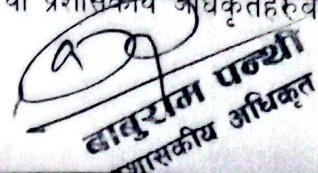 वा प्रशासकीय अधिकृतहरुव
बाबुराम पन्थी
शासकीय अधिकृत